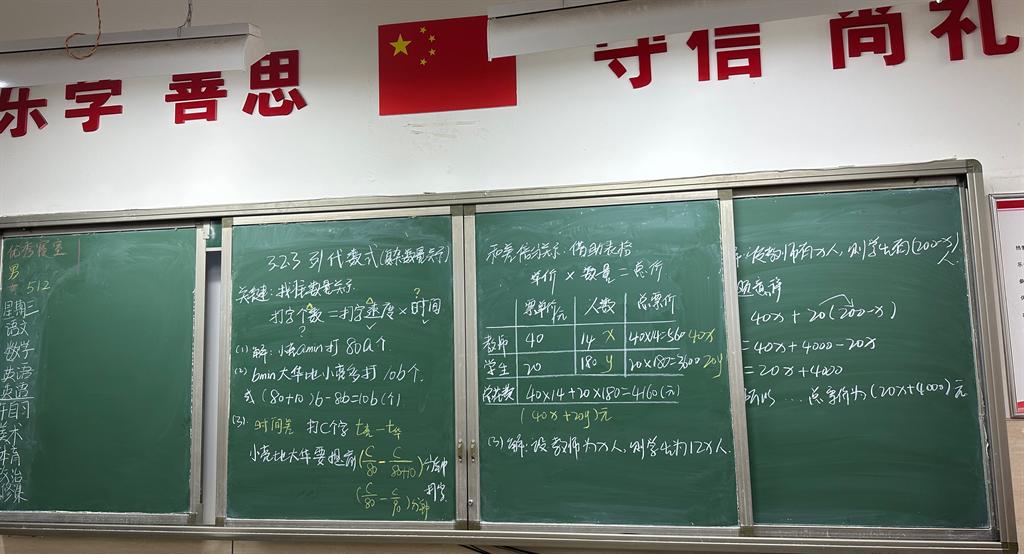 乐学 善思
守信 尚礼
优秀寝室
男
512
星期三
语文
数学
英语
英语
自习
美术
体育
政治
3.2.3 列代数式(复杂数量关系)
关键:找准数量关系
打字个数=打字速度×时间
? ?
(1)解:小亮a min打 80a个.
(2) b min大华比小亮多打 10b个.
(80+10)b-8b=10b(个)
(3). 时间差 打C个字 t亮-t华
小亮比大华要提前(C/80 - C/(80+10))分钟
打字
(C/80 - C/90)分钟
和差倍分关系:借助表格
单价×数量=总价
票单价/元 人数 总票价
教师 40 14 x 40×14=560 40x
学生 20 180 y 20×180=3600 20y
40×14+20×180=4160(元)
(40x+20y)元
(3)解:设教师为x人,则学生为12x人.
设教师有x人,则学生有(200-x)
人.
题意得
40x+20(200-x)
=40x+4000-20x
=20x+4000
所以…总票价为(20x+4000)元